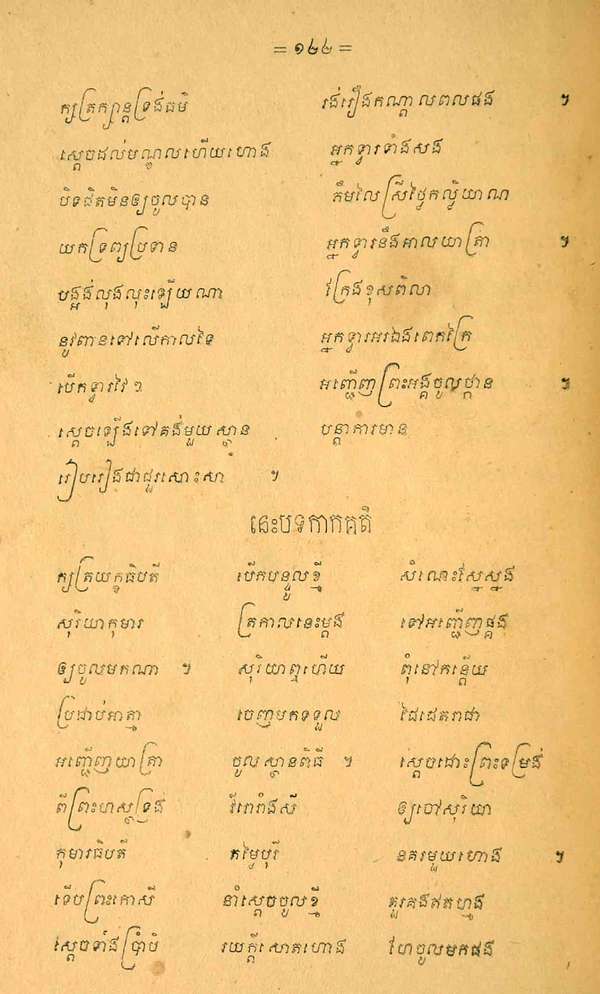 = ១៤៤ =
ក្សត្រក្សាន្តទ្រង់ធម៌ រង់រឿងកណ្ដាលពលផង ៕
ស្ដេចដល់បណ្ឌូលហើយហោង អ្នកទ្វារទាំងសង
បិទជិតមិនឲ្យចូលបាន ភឹមលៃស្រីថ្លៃកល្យិយាណ
យកទ្រព្យប្រទាន អ្នកទ្វារនឹងអាលយាត្រា ៕
បង្អង់លុងលុះឡើយណា ក្រែងខុសពិលា
នូវពានទៅលើកាលទៃ អ្នកទ្វារអរឯងពេកក្រៃ
បើកទ្វារវៃៗ អញ្ជើញព្រះអង្គចូលថ្កាន ៕
ស្ដេចឡើងទៅគង់មួយស្ថាន បន្ដាការមាន
រៀបរៀងជាជួរសោះសា ៕
នេះបទកាកគតិ
ក្សត្រយក្ខធិបតី បើកបន្ទូលខ្មី សំណេះស្នែស្នង
សុរិយាកុមារ ត្រកាលនេះម្ដង ទៅអញ្ជើញផ្គង
ឲ្យចូលមកណា ៕ សុរិយាឮហើយ ពុំនៅកន្តើយ
ប្រជាប់អាត្មា ចេញមកទទួល ដៃជេតរាជា
អញ្ជើញយាត្រា ចូលស្ថានពិធី ៕ ស្ដេចដោះព្រះទម្រង់
ពីព្រះហស្ថទ្រង់ វីរោរាំងសី ឲ្យចៅសុរិយា
កុមារធិបតី តម្លៃបុរី នគរមួយហោង ៕
ទើបព្រះកោសី នាំស្ដេចចូលខ្មី គួរគងឥតហ្មង
ស្ដេចទាំងប្រាំបី រយក្ដីសោតហោង ហែចូលមកផង